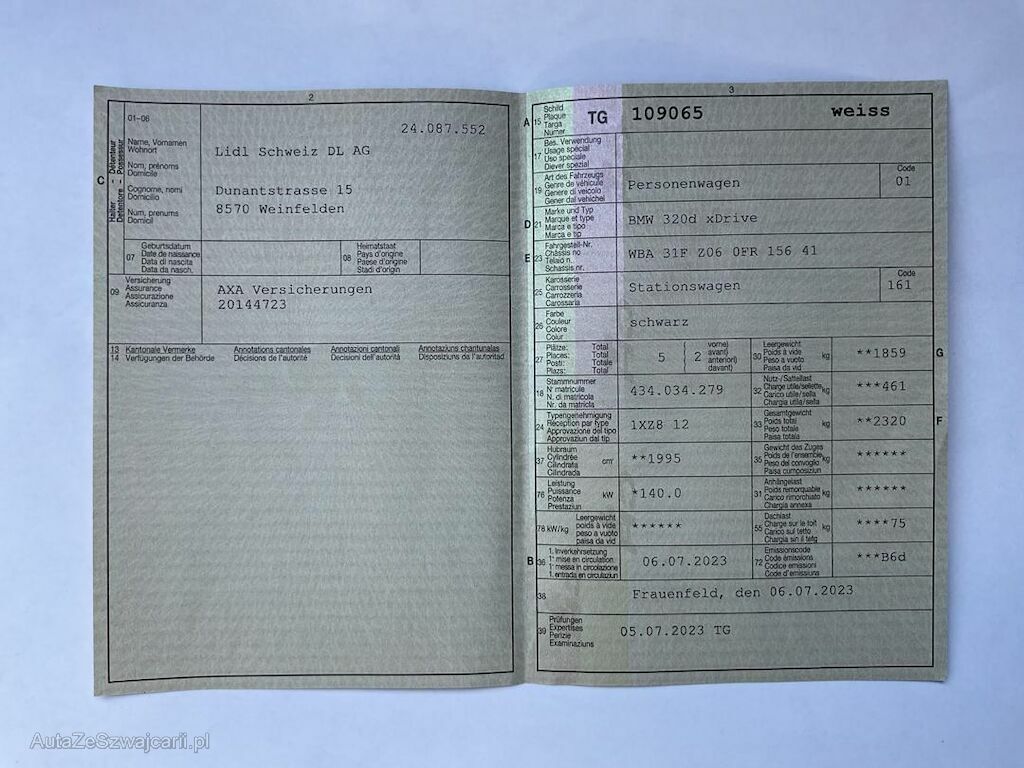 2
01–06
24.087.552
Halter - Détenteur
Detentore - Possessur
C
Name, Vornamen
Wohnort
Nom, prénoms
Domicile
Cognome, nomi
Domicilio
Num, prenums
Domicil
Lidl Schweiz DL AG
Dunantstrasse 15
8570 Weinfelden
07
Geburtsdatum
Date de naissance
Data di nascita
Data da nasch.
08
Heimatstaat
Pays d'origine
Paese d'origine
Stadi d'origin
09
Versicherung
Assurance
Assicurazione
Assicuranza
AXA Versicherungen
20144723
13 Kantonale Vermerke Annotations cantonales Annotazioni cantonali Annotaziuns chantunalas
14 Verfügungen der Behörde Décisions de l'autorité Decisioni dell'autorità Disposiziuns da l'autoritad
3
A
15
Schild
Plaque
Targa
Numer
TG 109065 weiss
17
Bes. Verwendung
Usage spécial
Uso speciale
Diever spezial
19
Art des Fahrzeugs
Genre de véhicule
Genere di veicolo
Gener dal vehichel
Personenwagen
Code
01
D
21
Marke und Typ
Marque et type
Marca e tipo
Marca e tip
BMW 320d xDrive
E
23
Fahrgestell-Nr.
Châssis no
Telaio n.
Schassis nr.
WBA 31F Z06 0FR 156 41
25
Karosserie
Carrosserie
Carrozzeria
Carossaria
Stationswagen
Code
161
26
Farbe
Couleur
Colore
Colur
schwarz
27
Plätze: Total
Places: Total
Posti: Totale
Plazs: Total
5 { 2
vorne)
avant)
anteriori)
davant)
30
Leergewicht
Poids à vide
Peso a vuoto
Paisa da vid
kg
**1859
G
18
Stammnummer
N° matricule
N. di matricola
Nr. da matricla
434.034.279
32
Nutz-/Sattellast
Charge utile/sellette
Carico utile/sella
Chargia utila/sella
kg
***461
24
Typengenehmigung
Réception par type
Approvazione del tipo
Approvaziun dal tip
1XZ8 12
33
Gesamtgewicht
Poids total
Peso totale
Paisa totala
kg
**2320
F
37
Hubraum
Cylindrée
Cilindrata
Cilindrada
cm³
**1995
35
Gewicht des Zuges
Poids de l'ensemble
Peso del convoglio
Paisa cumposiziun
kg
******
76
Leistung
Puissance
Potenza
Prestaziun
kW
*140.0
31
Anhängelast
Poids remorquable
Carico rimorchiato
Chargia annexa
kg
******
78 kW/kg
Leergewicht
poids à vide
peso a vuoto
paisa da vid
******
55
Dachlast
Charge sur le toit
Carico sul tetto
Chargia sin il tetg
kg
****75
B
36
1. Inverkehrsetzung
1re mise en circulation
1a messa in circolazione
1. entrada en circulaziun
06.07.2023
72
Emissionscode
Code émissions
Codice emissioni
Code d'emissiuns
***B6d
38
Frauenfeld, den 06.07.2023
39
Prüfungen
Expertises
Perizie
Examinaziuns
05.07.2023 TG
AutaZeSzwajcarii.pl